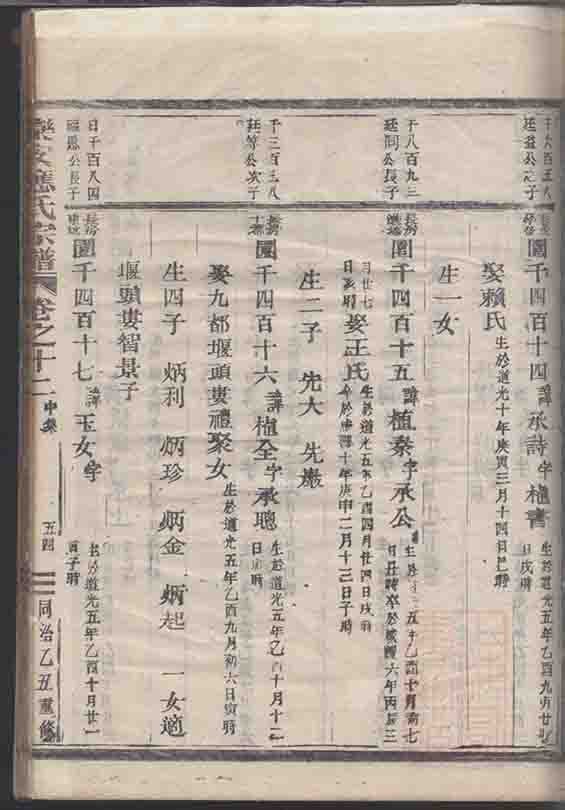 千八百五八
延益公次子
圖千四百十四 諱承詩字植書
生於道光五年乙酉九月廿
日戌時
娶賴氏 生於道光十年庚寅三月十四日巳時
生一女
千八百九三
延嗣公長子
長房
圖千四百十五 諱植泰字承公
五年乙酉十月初七
日丑時卒於咸豐六年丙辰三
月廿七
日亥時
娶王氏
生於道光五年乙酉四月廿四日戌時
卒於咸豐十年庚申二月十二日子時
生二子 先大 先巖
千三百三八
廷等公次子
長房
圖千四百十六 諱植全字承聰
生於道光五年乙酉十月十二
日寅時
娶九都堰頭婁禮聚女 生於道光五年乙酉九月初六日寅時
生四子 炳利 炳珍 炳金 炳起 一女適
堰頭婁智景子
日千百八四
公長子
長房
圖千四百十七 諱玉女字
生於道光五年乙酉十月廿一
日子時
樂安應氏宗譜 卷之十二 中集 五四 同治乙丑重修